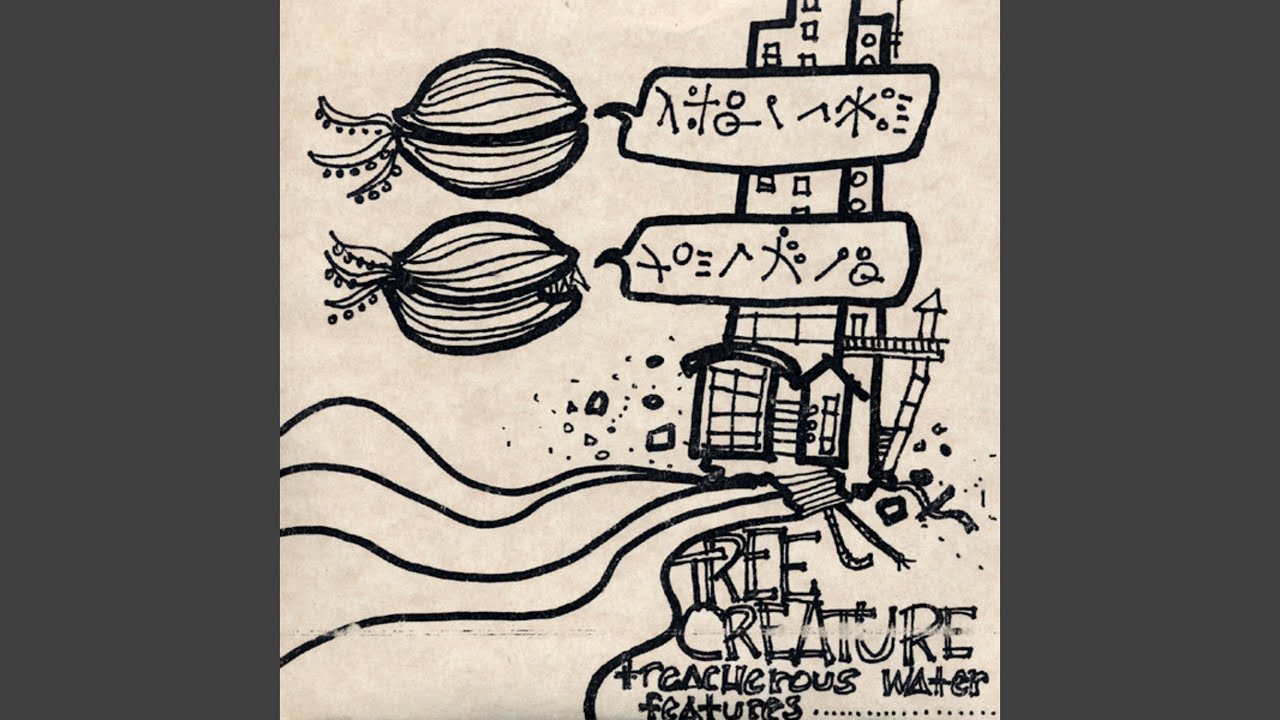 TREE
CREATURE
treacHerous water
features..................